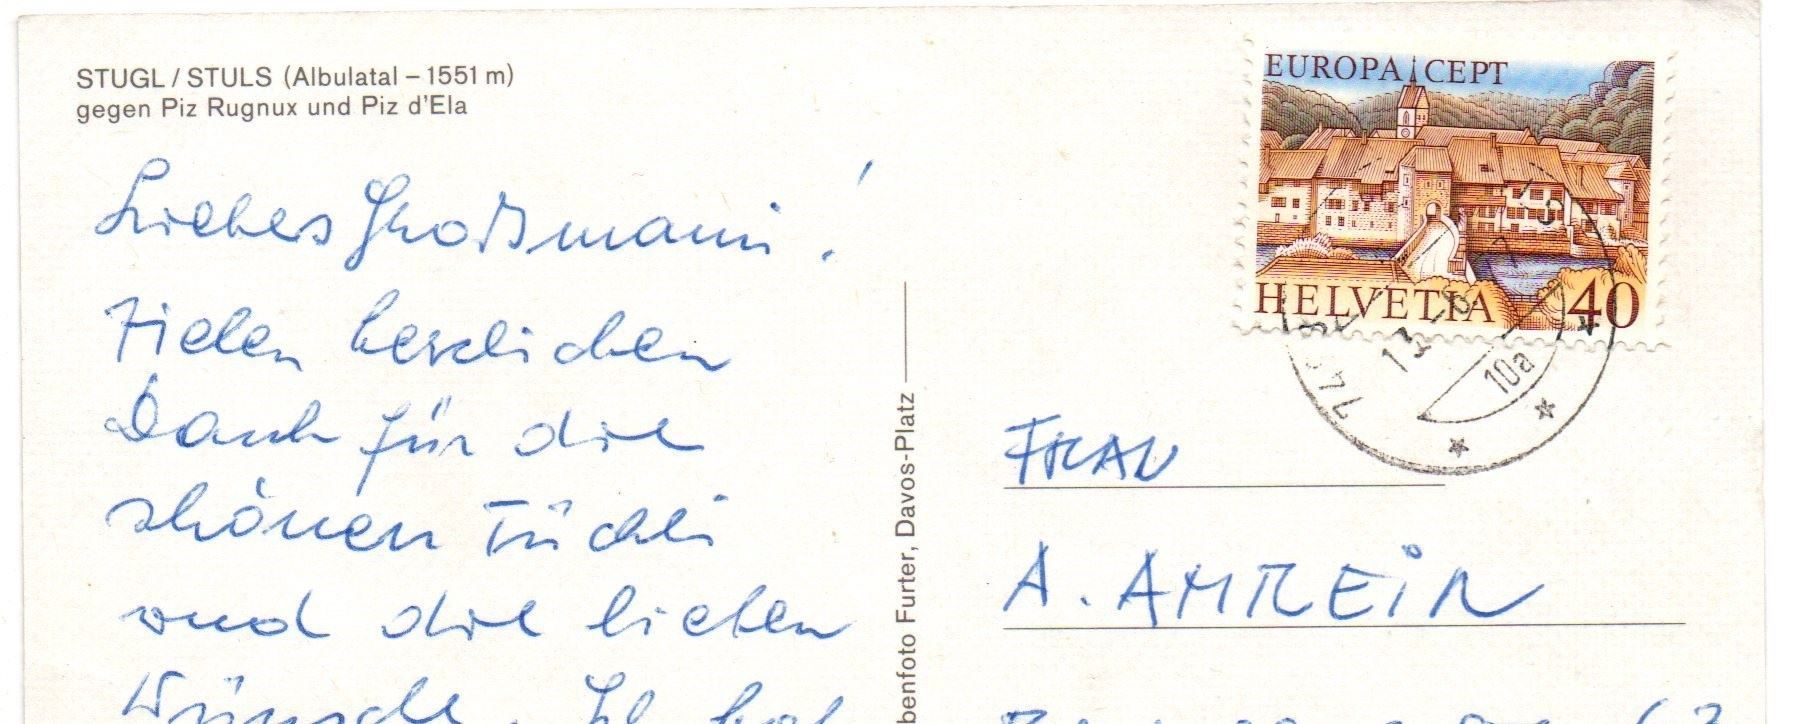 STUGL / STULS (Albulatal – 1551 m)
gegen Piz Rugnux und Piz d'Ela
Liebes Großmami!
Vielen herzlichen
Dank für die
schönen Tüchli
und die lieben
Wünsche. Ich hab
benfoto Furter, Davos-Platz
EUROPA CEPT
HELVETIA 40
13
10a
FRAU
A. AMREIN